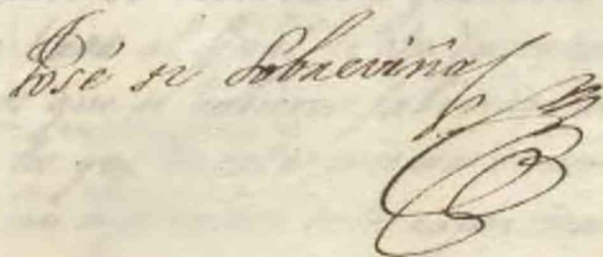 José de Sobreviña